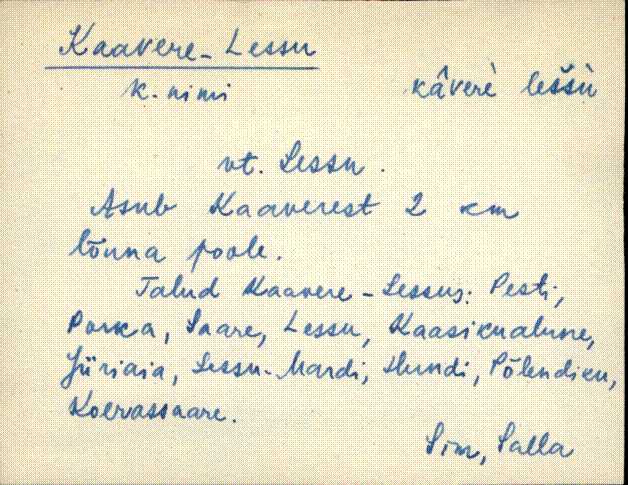 Kaavere-Lessu
k. nimi kâverè leššù
vt. Lessu.
Asub Kaaverest 2 km
lõuna poole.
Talud Kaavere-Lessus: Pesti,
Porka, Saare, Lessu, Kaasikualune,
Jüriaia, Lessu-Mardi, Hundi, Põlendiku,
Koerassaare.
Sim, Salla